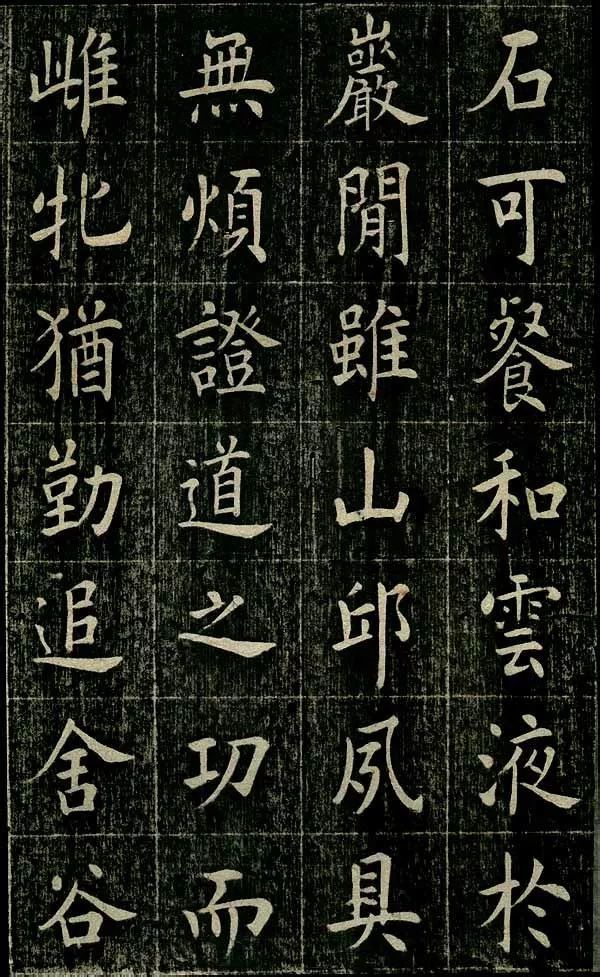 石可餐和雲液於
巖閒雖山邱夙具
無煩證道之功而
雌牝猶勤追舍谷